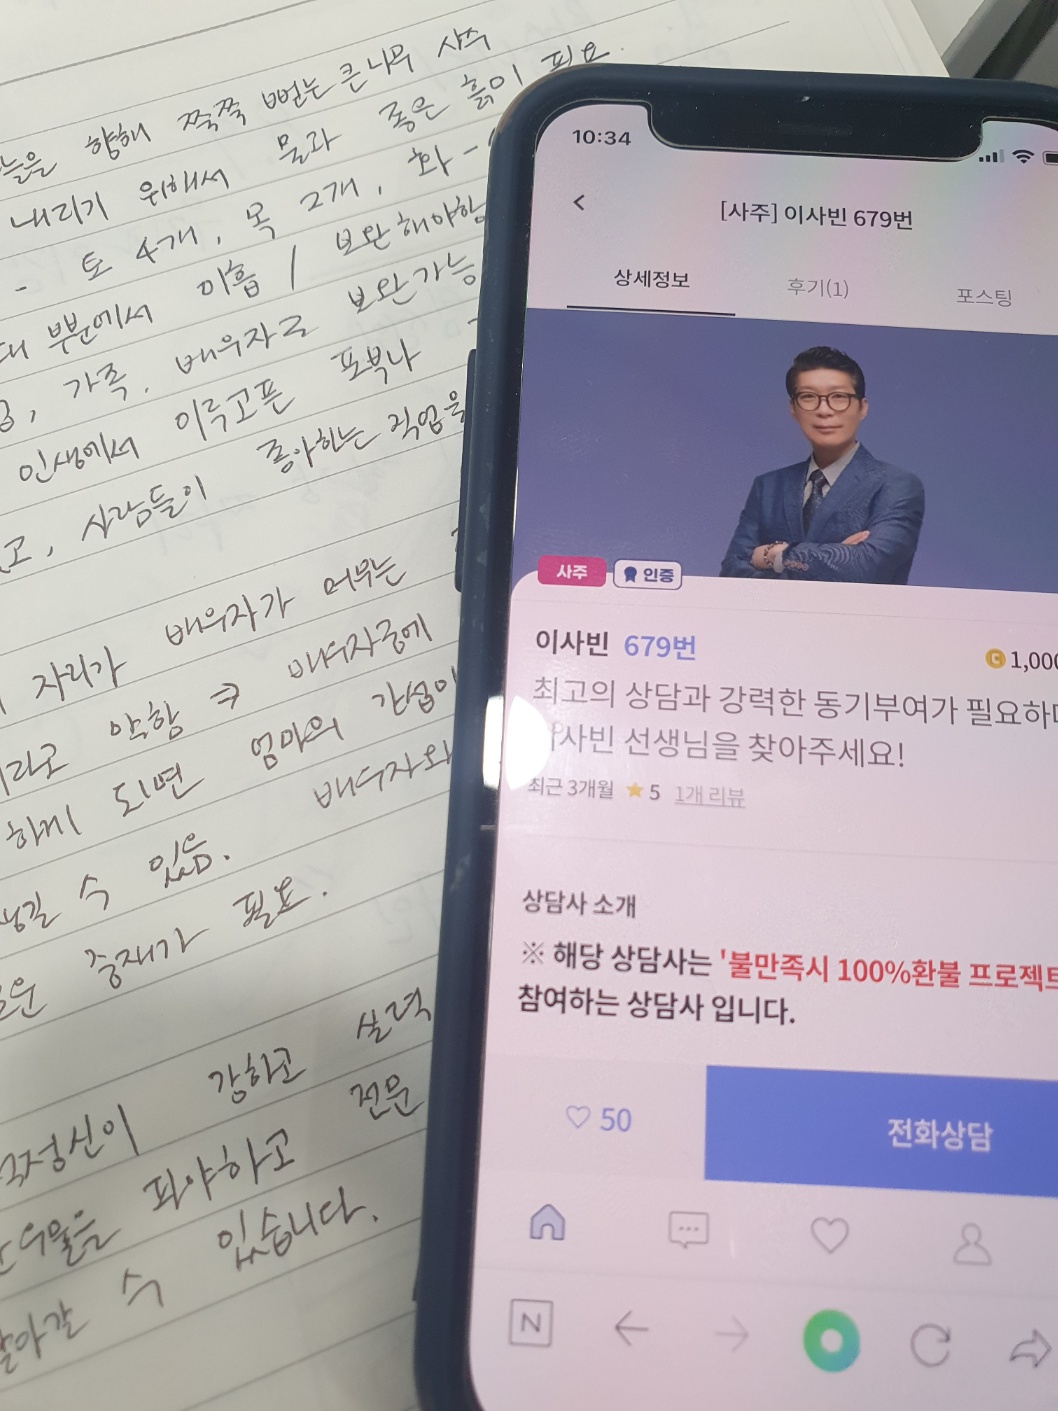 늘을 향해 쭉쭉 뻗는 큰나무 사주
내리기 위해서 물과 좋은 흙이 필요.
- 토 4개, 목 2개, 화 -
부분에서 이흡 / 보완해야함
, 가족, 배우자로 보완가능
인생에서 이루고픈 포부나
고, 사람들이 좋아하는 직업을
자리가 배우자가 머무는
라고 약함 → 배우자궁에
하게 되면 엄마의 간섭이
생길 수 있음. 배우자와
중재가 필요.
정신이 강하고 실력
우물을 파야하고 전문
살아갈 수 있습니다.
10:34
[사주] 이사빈 679번
상세정보
후기(1)
포스팅
사주
인증
이사빈 679번
1,000
최고의 상담과 강력한 동기부여가 필요하
이사빈 선생님을 찾아주세요!
최근 3개월 ★ 5 1개 리뷰
상담사 소개
※ 해당 상담사는 '불만족시 100%환불 프로젝트
참여하는 상담사 입니다.
♡ 50
전화상담
N